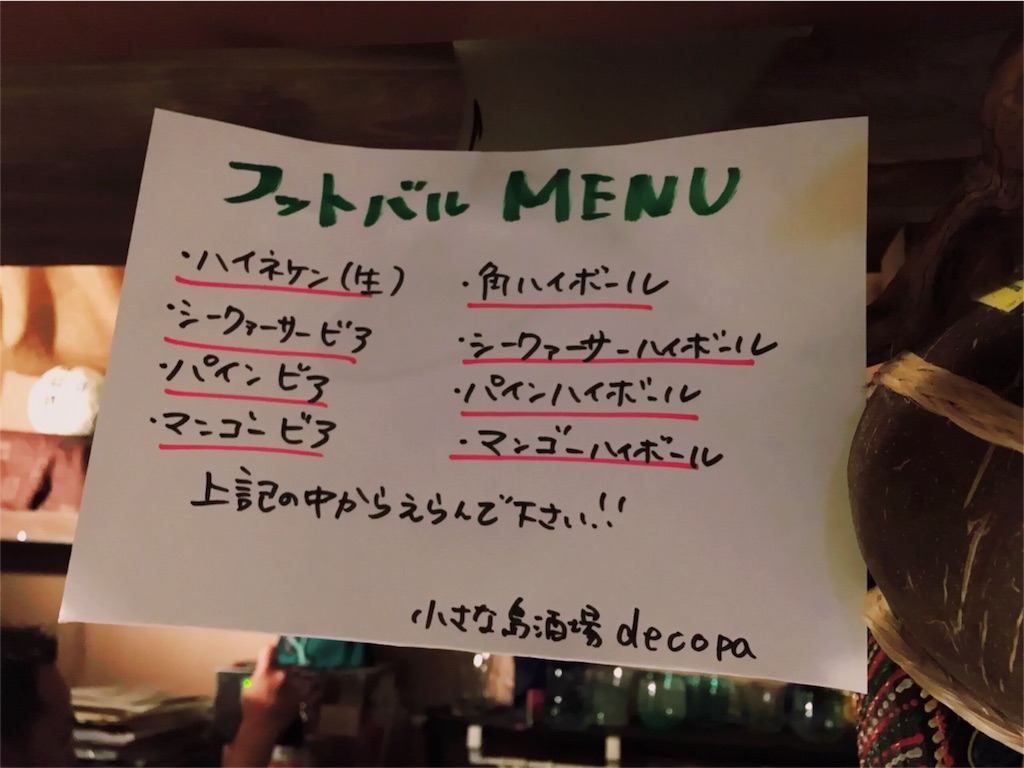 フットバル MENU
・ハイネケン(生)
・シークァーサービア
・パインビア
・マンゴービア
・角ハイボール
・シークァーサーハイボール
・パインハイボール
・マンゴーハイボール
上記の中からえらんで下さい!!
小さな島酒場 decopa